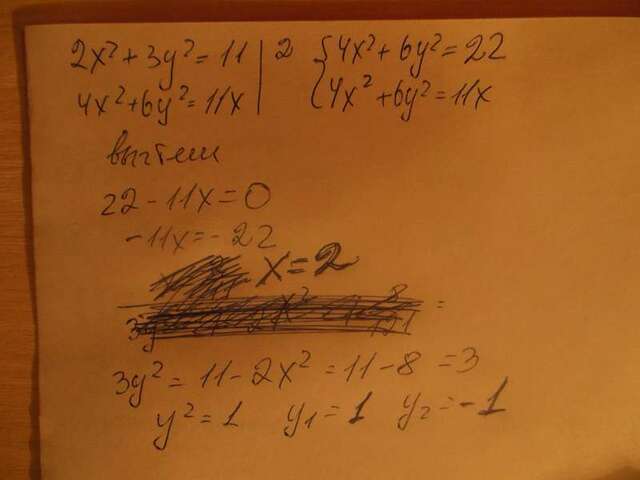 2x² + 3y² = 11 | 2 { 4x² + 6y² = 22
4x² + 6y² = 11x | { 4x² + 6y² = 11x
вычтем
22 - 11x = 0
-11x = -22
x = 2
3y² = 11 - 2x² = 11 - 8 = 3
y² = 1 y₁ = 1 y₂ = -1